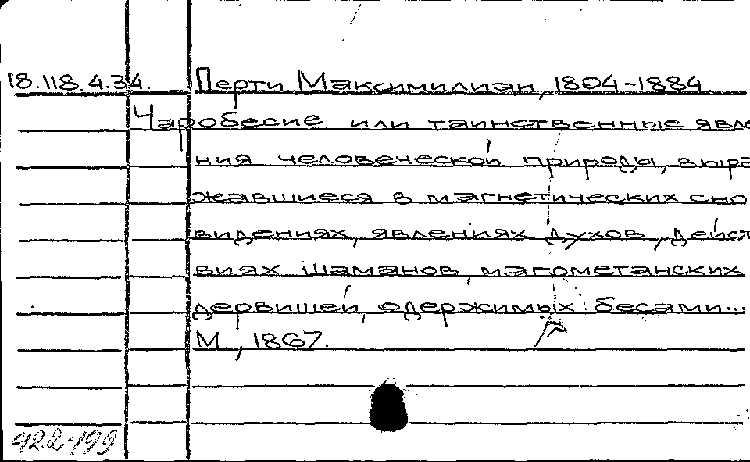 18.118.4.34. Перти Максимилиан, 1804-1884
Чаробесие или таинственные явле
ния человеческой природы, выра
жавшиеся в магнетических сно
видениях, явлениях духов, дейст
виях шаманов, магометанских
дервишей, одержимых бесами...
М., 1867.
922-199